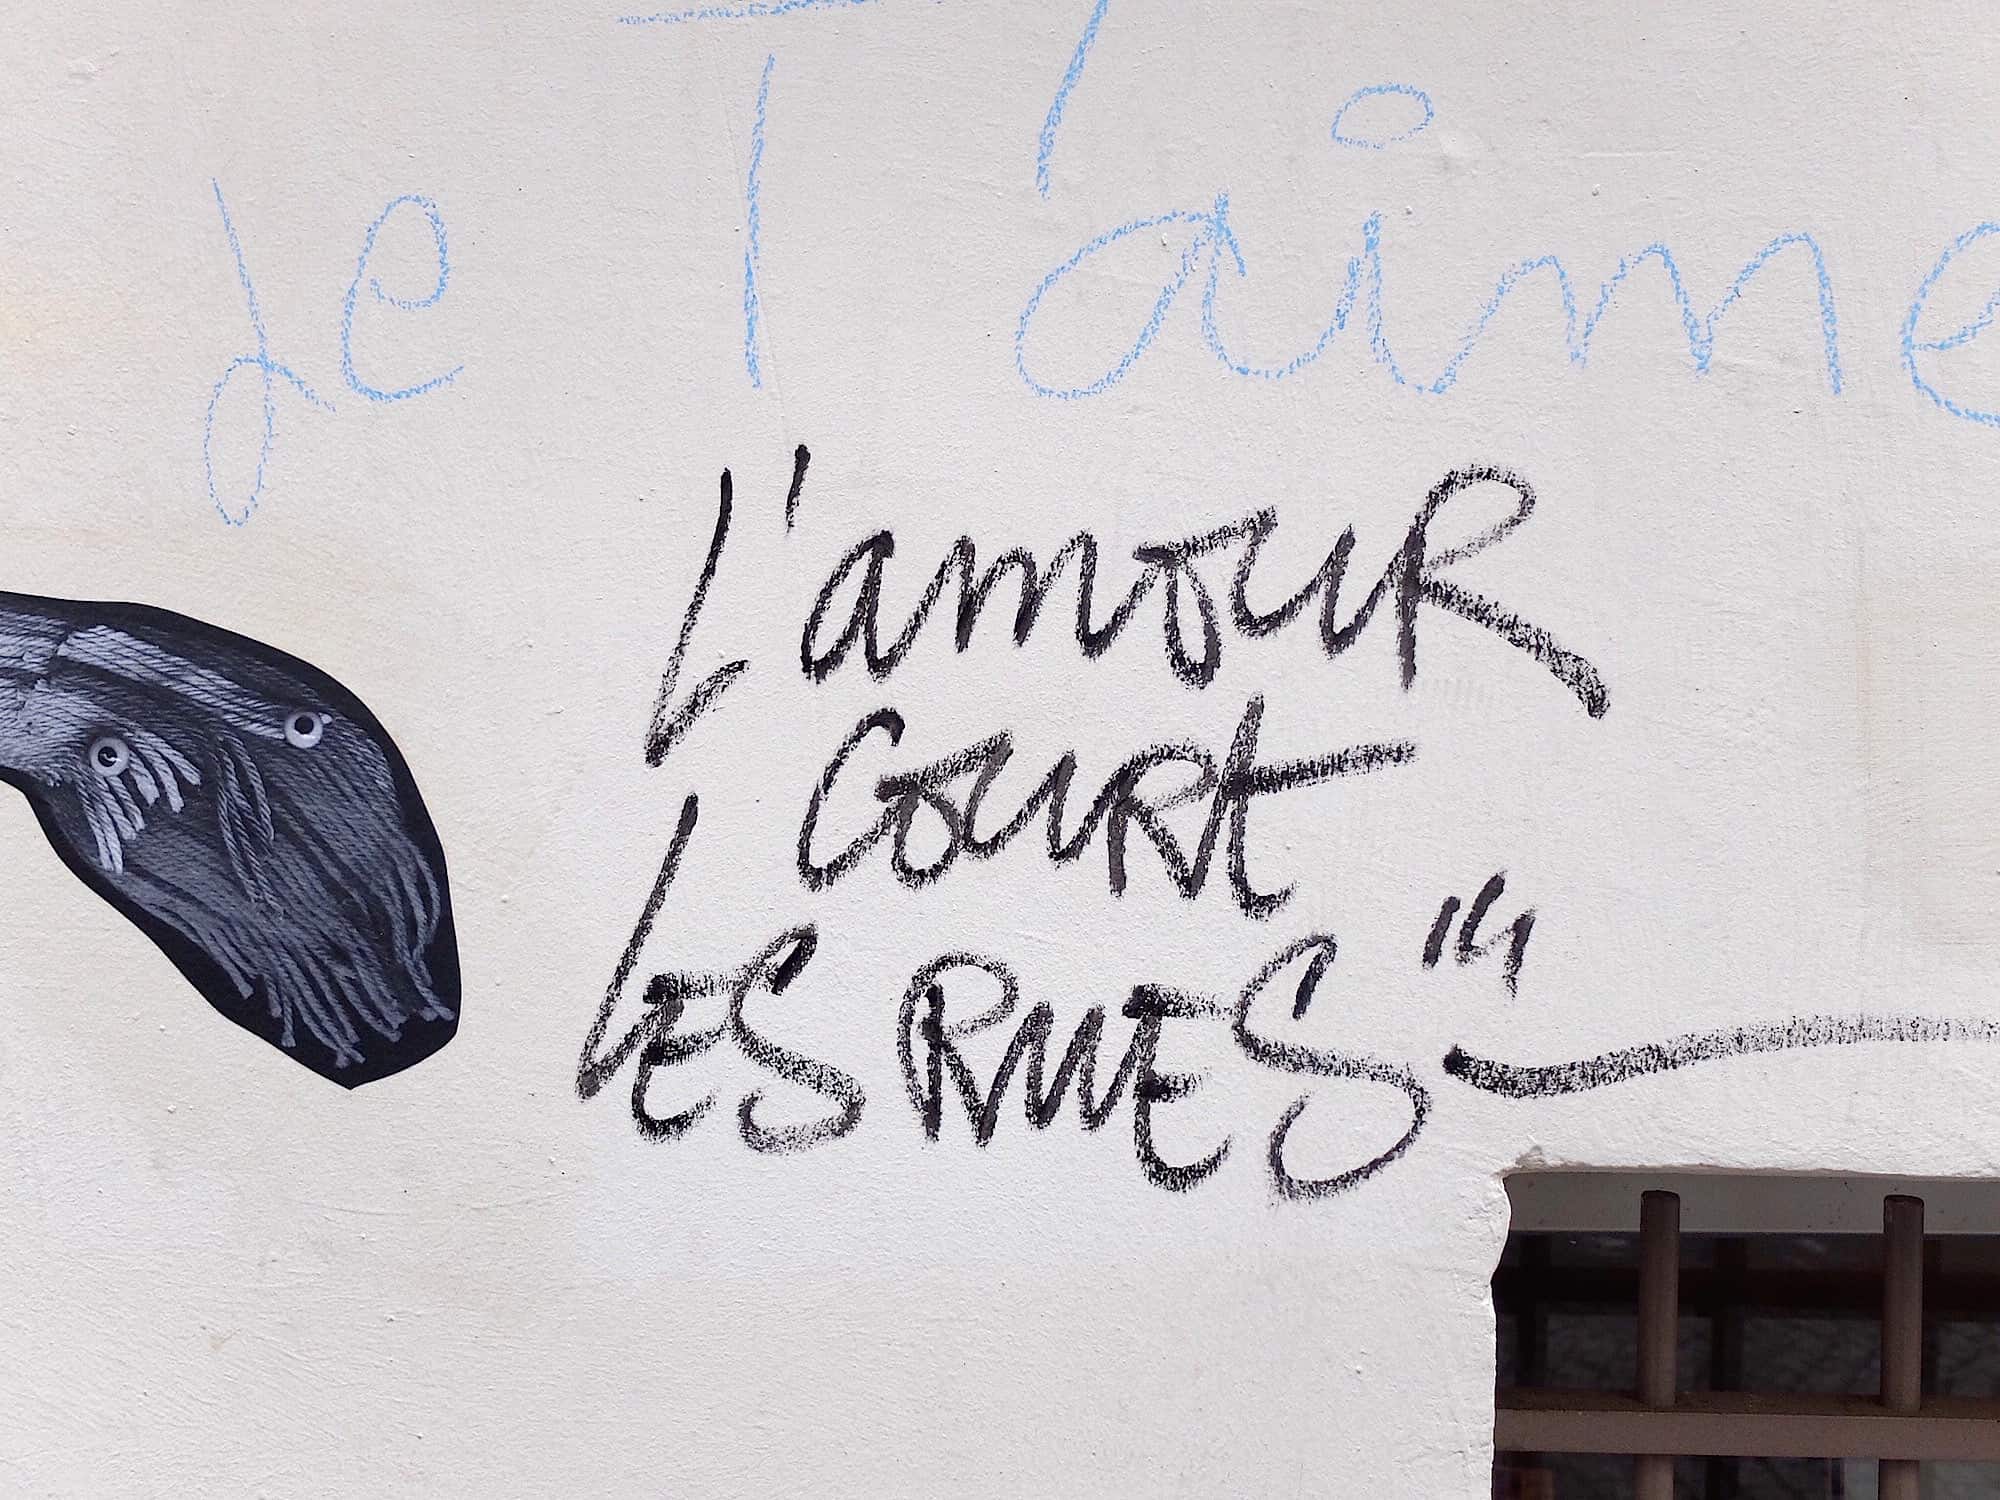 Je T'aime
L'amour
court
Les Rues